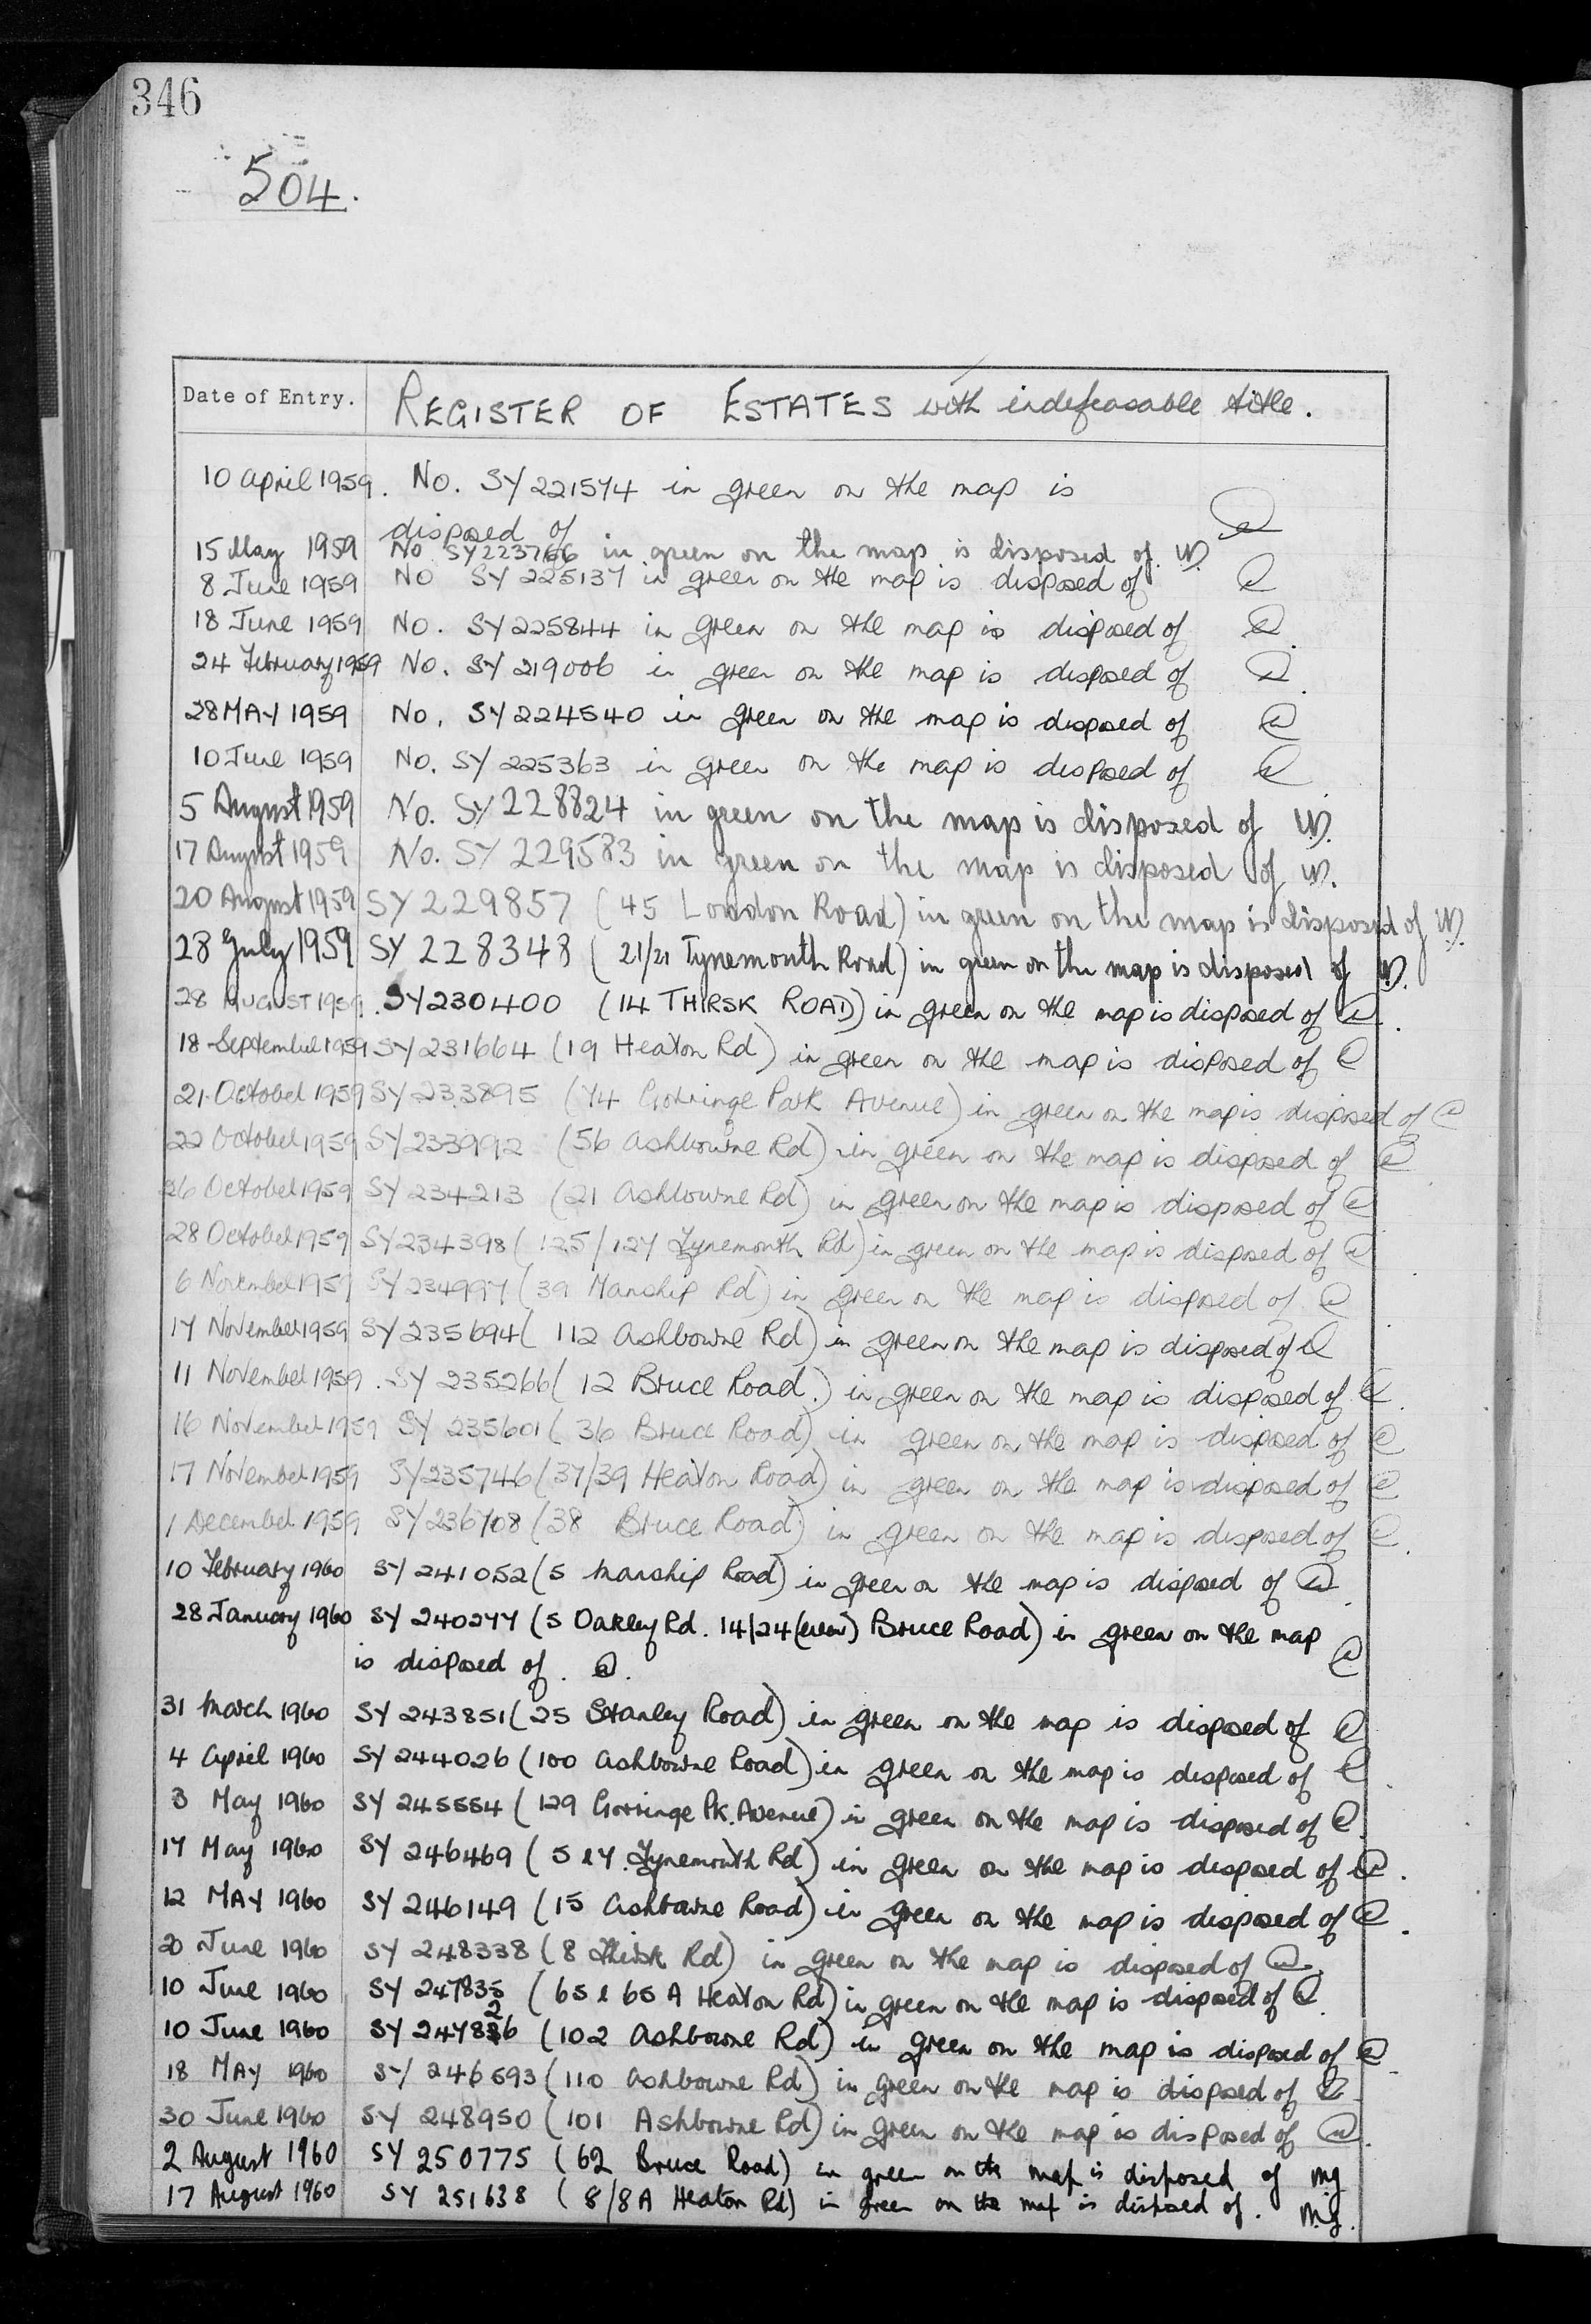 346
504.
Date of Entry. REGISTER OF ESTATES with indefeasable title.
10 April 1959. No. SY 221574 in green on the map is
disposed of
15 May 1959 No SY223766 in green on the map is disposed of. W.
8 June 1959 No SY 225137 in green on the map is disposed of
18 June 1959 No. SY 225844 in green on the map is disposed of
24 February 1959 No. SY 219006 in green on the map is disposed of
28 MAY 1959 No. SY 224540 in green on the map is disposed of
10 June 1959 No. SY 225363 in green on the map is disposed of
5 August 1959 No. SY 228824 in green on the map is disposed of W.
17 August 1959 No. SY 229583 in green on the map is disposed of W.
20 August 1959 SY 229857 (45 London Road) in green on the map is disposed of W.
28 July 1959 SY 228348 (21/21 Tynemouth Road) in green on the map is disposed of W.
28 AUGUST 1959. SY230400 (14 THIRSK ROAD) in green on the map is disposed of
18 September 1959 SY 231664 (19 Heaton Rd) in green on the map is disposed of
21 October 1959 SY 233895 (74 Gorringe Park Avenue) in green on the map is disposed of
22 October 1959 SY 233992 (56 Ashbourne Rd) in green on the map is disposed of
26 October 1959 SY 234213 (21 Ashbourne Rd) in green on the map is disposed of
28 October 1959 SY 234398 (125/127 Tynemouth Rd) in green on the map is disposed of
6 November 1959 SY 234997 (39 Manship Rd) in green on the map is disposed of
17 November 1959 SY 235694 (112 Ashbourne Rd) in green on the map is disposed of
11 November 1959. SY 235266 (12 Bruce Road.) in green on the map is disposed of
16 November 1959 SY 235601 (36 Bruce Road) in green on the map is disposed of
17 November 1959 SY235746 (37/39 Heaton Road) in green on the map is disposed of
1 December 1959 SY 236708 (38 Bruce Road) in green on the map is disposed of
10 February 1960 SY 241052 (5 Manship Road) in green on the map is disposed of
28 January 1960 SY 240277 (5 Oakley Rd. 14/24 (even) Bruce Road) in green on the map
is disposed of.
31 March 1960 SY 243851 (25 Stanley Road) in green on the map is disposed of
4 April 1960 SY 244026 (100 Ashbourne Road) in green on the map is disposed of
3 May 1960 SY 245554 (129 Gorringe Pk. Avenue) in green on the map is disposed of
17 May 1960 SY 246469 (5 & 7 Tynemouth Rd) in green on the map is disposed of
12 MAY 1960 SY 246149 (15 Ashbourne Road) in green on the map is disposed of
20 June 1960 SY 248338 (8 Thirsk Rd) in green on the map is disposed of
10 June 1960 SY 247835 (65 & 65 A Heaton Rd) in green on the map is disposed of
10 June 1960 SY 247826 (102 Ashbourne Rd) in green on the map is disposed of
18 MAY 1960 SY 246593 (110 Ashbourne Rd) in green on the map is disposed of
30 June 1960 SY 248950 (101 Ashbourne Rd) in green on the map is disposed of
2 August 1960 SY 250775 (62 Bruce Road) in green on the map is disposed of Mg
17 August 1960 SY 251638 (8/8A Heaton Rd) in green on the map is disposed of. Mg.